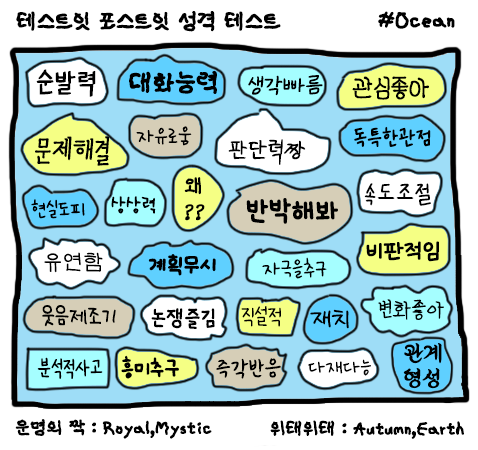 테스트잇 포스트잇 성격 테스트 #Ocean
순발력 대화능력 생각빠름 관심좋아
문제해결 자유로움 판단력짱 독특한관점
현실도피 상상력 왜?? 반박해봐 속도조절
유연함 계획무시 자극을추구 비판적임
웃음제조기 논쟁즐김 직설적 재치 변화좋아
분석적사고 흥미추구 즉각반응 다재다능 관계형성
운명의 짝 : Royal,Mystic 위태위태 : Autumn,Earth